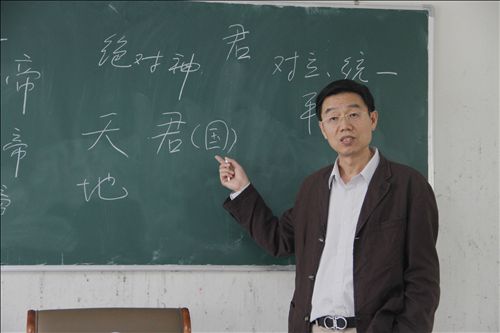 帝
绝对神
君
对立、统一
帝
天
君(国)
地